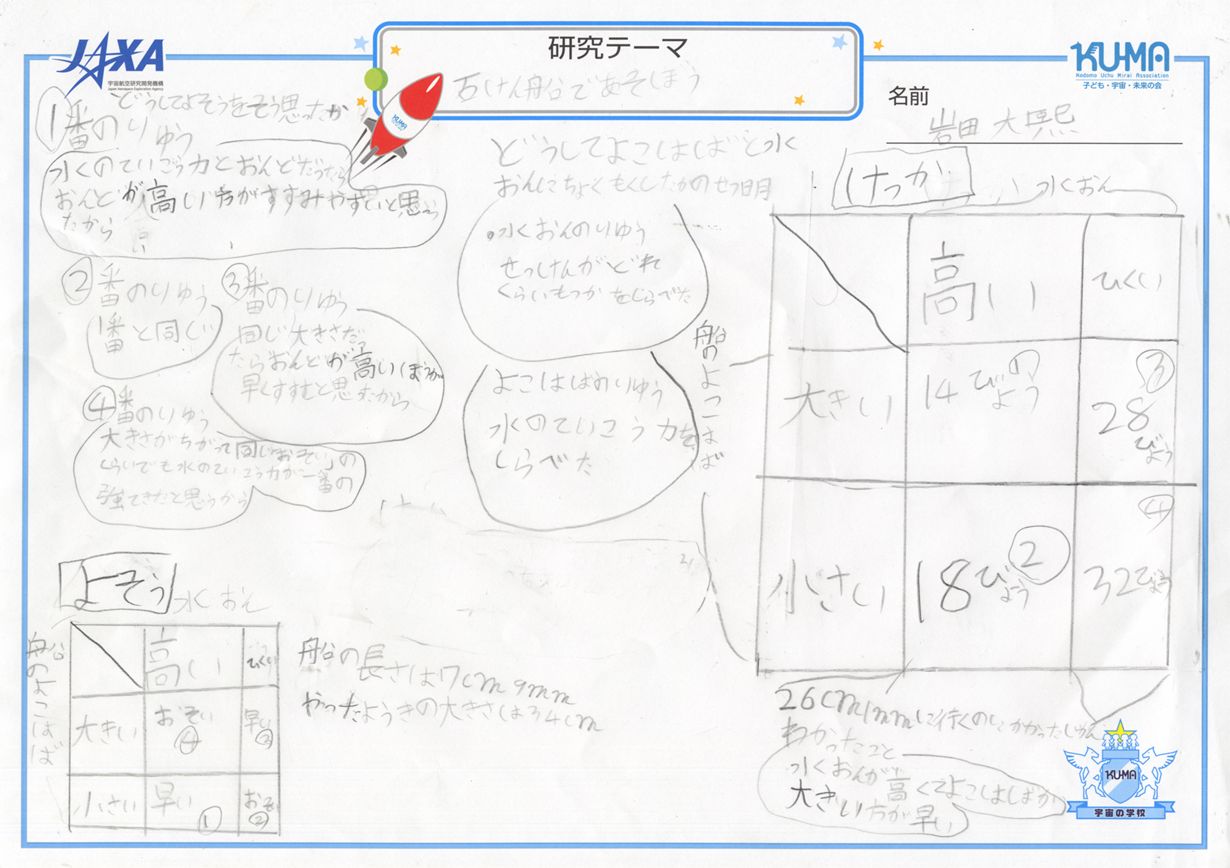 JAXA
宇宙航空研究開発機構
Japan Aerospace Exploration Agency
研究テーマ
石けん船であそぼう
KUMA
Kodomo Uchu Mirai Association
子ども・宇宙・未来の会
名前
岩田 大熙
どうしてよそうをそう思ったか
①番のりゆう
水のていこう力とおんどだったら
おんどが高い方がすすみやすいと思っ
たから
②番のりゆう
1番と同じ
③番のりゆう
同じ大きさだっ
たらおんどが高いほうが
早くすすむと思ったから
④番のりゆう
大きさがちがって同じ「おそい」の
くらいでも水のていこう力が一番の
強てきだと思うから
どうしてよこはばと水
おんにちょくもくしたかのせつ明
・水おんのりゆう
せっけんがどれ
くらいもつかをしらべた
よこはばのりゆう
水のていこう力を
しらべた
よそう
水おん
船のよこはば
高い
ひくい
大きい
おそい
④
早い
小さい
早い
①
おそい
船の長さは7cm9mm
やったようきの大きさは34cm
けっか
水おん
船のよこはば
高い
ひくい
大きい
14びょう
①
③
28びょう
小さい
18びょう
②
④
32びょう
26cm1mm
わかったこと
水おんが高くてよこはばが
大きい方が早い
KUMA
宇宙の学校